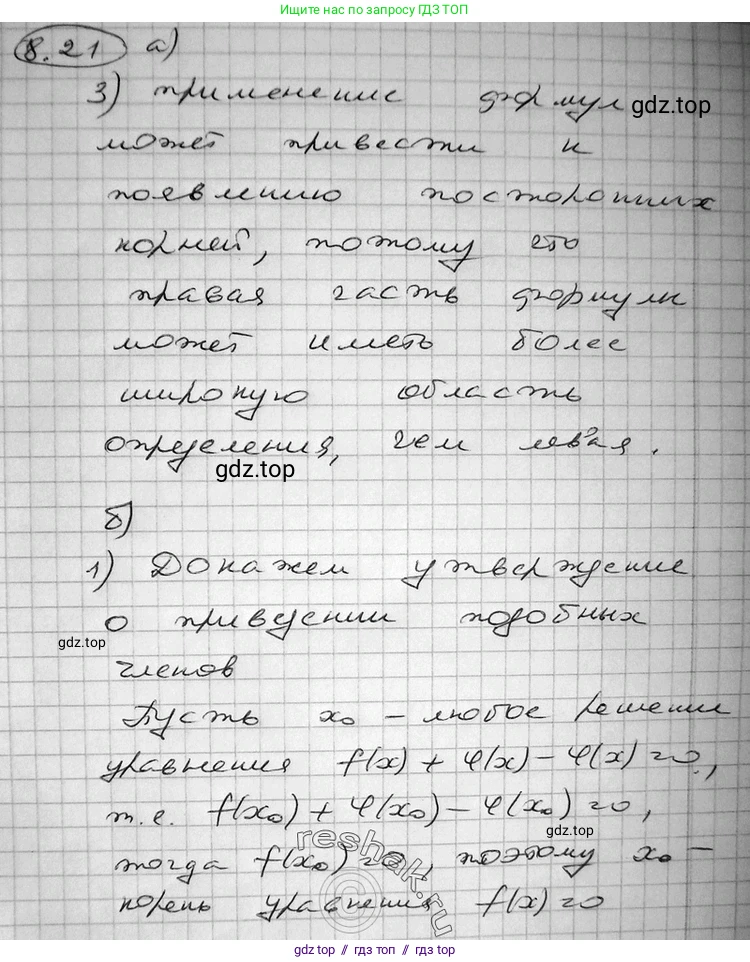 Ищите нас по запросу ГДЗ ТОП
8.21 а)
3) применение формул gdz.top
может привести к
появлению посторонних
корней, потому что
правая часть формулы
может иметь более
широкую область
определения, чем левая.
gdz.top
б)
1) Докажем утверждение
о приведении подобных
gdz.top
членов
Пусть x₀ – любое решение
уравнения f(x) + φ(x) – φ(x) = 0,
т.е. f(x₀) + φ(x₀) – φ(x₀) = 0,
gdz.top
тогда f(x₀) = 0, поэтому x₀ –
reshak.ru
корень уравнения f(x) = 0
gdz.top // гдз топ // гдз.топ